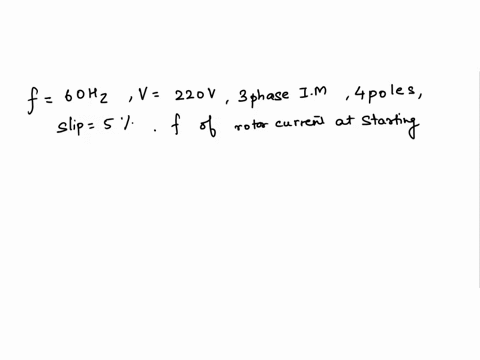 f = 60Hz , V = 220V , 3phase I.M , 4poles,
slip = 5 % . f of rotor current at starting